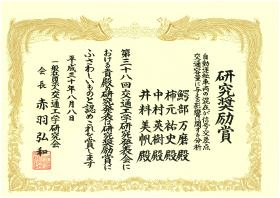 研究奨励賞
自動運転車両の混在が信号交差点
交通容量に与える影響に関する分析
鰐部 万磨殿
柿元 祐史殿
中村 英樹殿
井料 美帆殿
第三十八回交通工学研究発表会に
おける貴殿の研究発表は研究奨励賞に
ふさわしいものと認めこれを賞します
平成三十年八月八日
一般社団法人交通工学研究会
会長 赤羽弘和